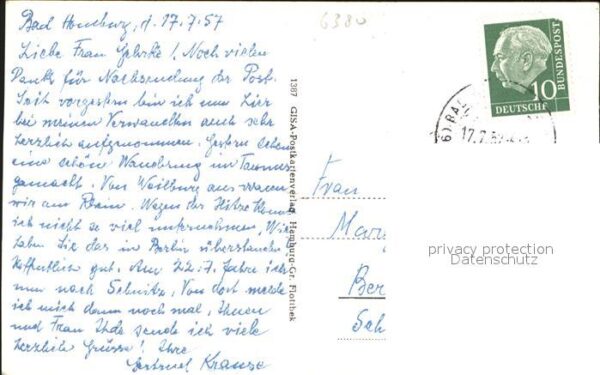 Bad Homburg, d. 17.7.57
Liebe Frau Gehrke! Noch vielen
Dank für Nachsendung der Post.
Seit vorgestern bin ich nun hier
bei meinen Verwandten auch sehr
herzlich aufgenommen. Gestern haben
eine schöne Wanderung im Taunus
gemacht. Von Weilburg aus waren
wir am Rhein. Wegen der Hitze konnte
ich nicht so viel unternehmen, Wie
haben Sie das in Berlin überstanden
hoffentlich gut. Am 22.7. fahre ich
nun nach Sebnitz, Von dort melde
ich mich dann noch mal, Ihnen
und Frau Ihde sende ich viele
herzliche Grüsse! Ihre
Gertrud Krause
6380
1387 GISA-Postkartenverlag, Hamburg-Gr. Flottbek
10
DEUTSCHE
BUNDESPOST
17.7.57
Frau
Mar
Ber
Sch
privacy protection
Datenschutz